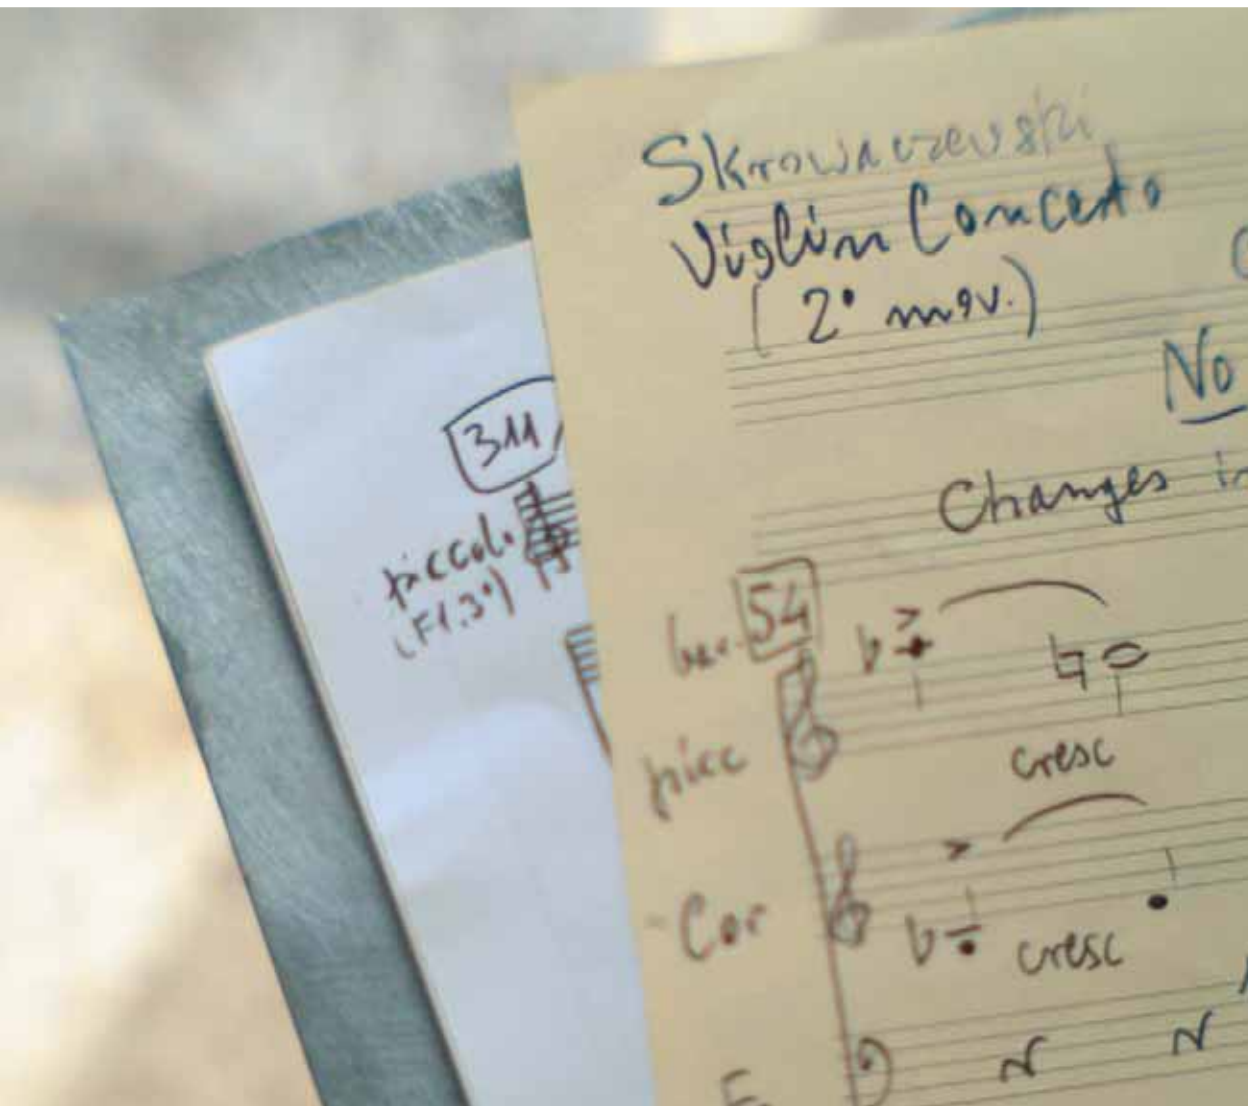 Skrowaczewski
Violin Concerto
(2° mov.)
No
Changes in
311
piccolo
(Fl. 3°)
54
picc
cresc
Cor
cresc